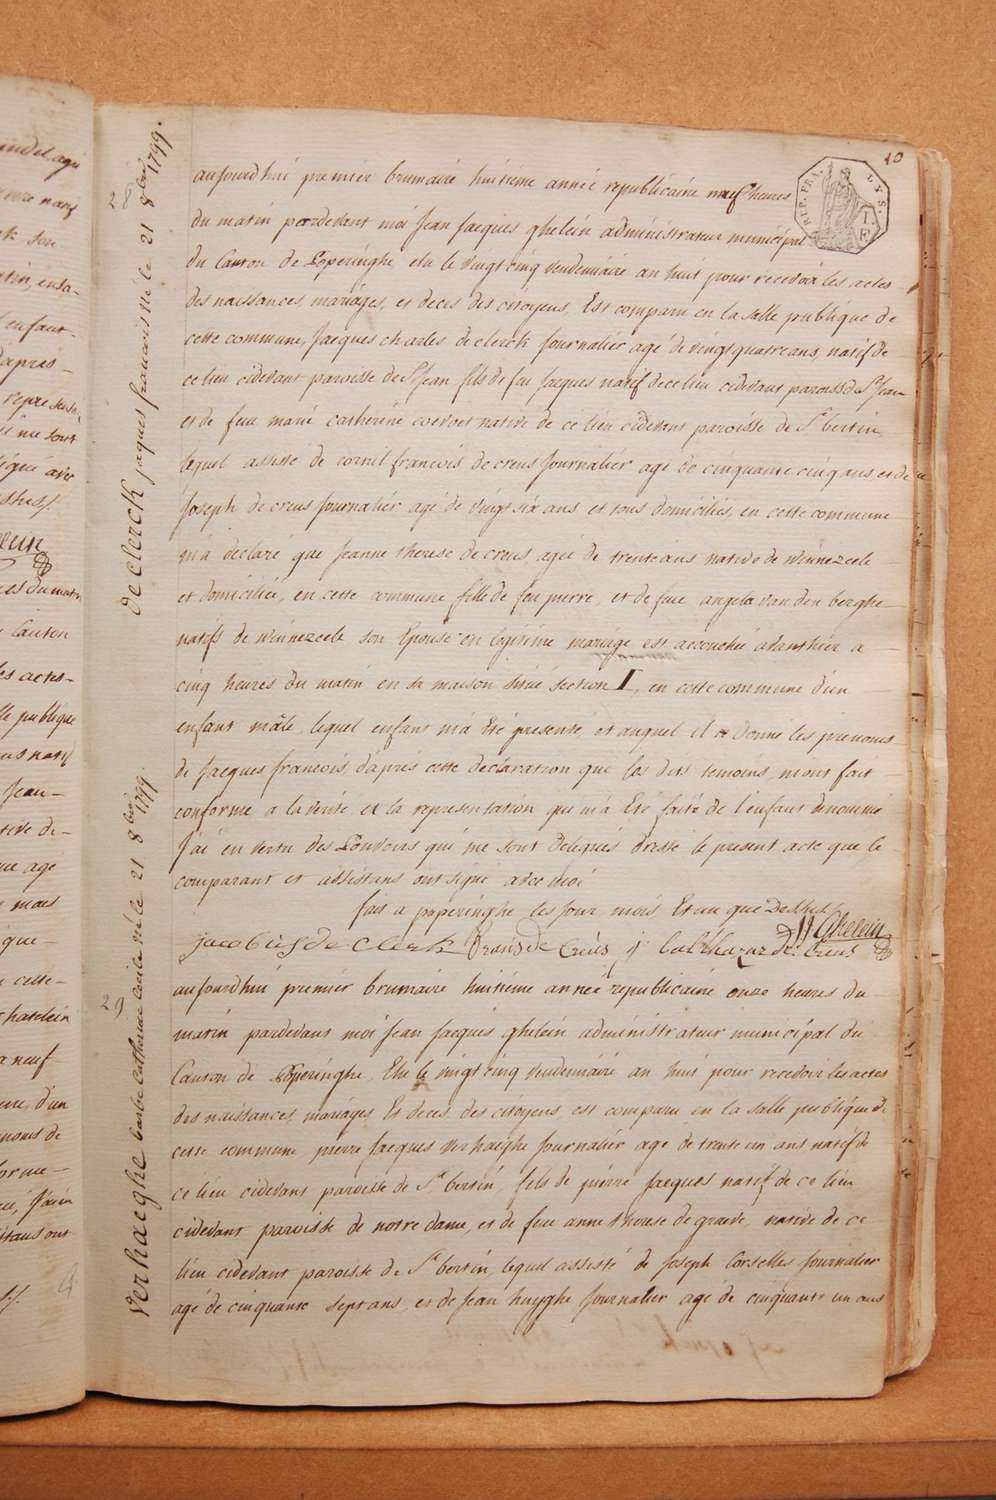 10
REP. FRA.
LYS.
28
de Clerck jaques francois né le 21 8bre 1799.
aujourdhui premier brumaire huitieme année republicaine neuf heures
du matin pardevant moi Jean Jacques ghelein administrateur municipal
du Canton de Poperinghe elu le vingt cinq vendemiaire an huit pour recevoir les actes
des naissances, mariages, et deces des citoyens, Est comparu en la salle publique de
cette commune, Jacques charles de clerck journalier agé de vingt quatre ans, natif de
ce lieu cidevant paroisse de St Jean fils de feu Jacques natif de ce lieu cidevant paroisse de St Jean
et de feue marie catherine coevoet native de ce lieu cidevant paroisse de St bertin
lequel assisté de cornil francois de creus journalier agé de cinquante cinq ans et de
Joseph de creus journalier agé de vingt six ans et tous domiciliés, en cette commune
m'a declaré que Jeanne therese de creus, agée de trente ans native de winnezeele
et domiciliée, en cette commune fille de feu pierre, et de feue angela van den berghe
natifs de winnezeele son Epouse en legitime mariage est accouchée avanthier a
cinq heures du matin en sa maison situé section I, en cette commune d'un
enfant mâle, lequel enfant m'a été présenté, et auquel il a donné les prenoms
de Jacques francois, d'après cette déclaration que les dits temoins, m'ont fait
conforme a la verité et la representation qui m'a Eté faite de l'enfant denommé
J'ai en vertu des Pouvoirs qui me sont délégués dressé le present acte que le
comparant et assistans ont signé avec moi
fait a poperinghe les jour mois Et an que Dessus
JJ Ghelein
jacobus de Clerck frans de Creus j balthazar de Creus
29
Verhaeghe barbe catherine cecile née le 21 8bre 1799
aujourdhui premier brumaire huitieme année republicaine onze heures du
matin pardevant moi Jean Jacques ghelein administrateur municipal du
Canton de Poperinghe, Elu le vingt cinq vendemiaire an huit pour recevoir les actes
des naissances, mariages Et deces, des citoyens, est comparu en la salle publique de
cette commune pierre Jacques verhaeghe journalier agé de trente un ans, natif de
ce lieu cidevant paroisse de St bertin, fils de pierre Jacques natif de ce lieu
cidevant paroisse de notre dame, et de feue anne therese de graeve, native de ce
lieu cidevant paroisse de St bertin, lequel assisté de Joseph Corselles journalier
agé de cinquante sept ans, et de Jean huyghe journalier agé de cinquante un ans